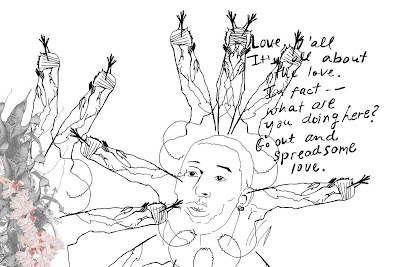 Love, y'all
It's all about
the love.
In fact --
what are
you doing here?
Go out and
spread some
love.